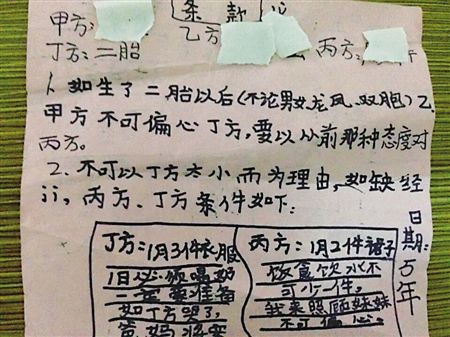 条款
甲方:
乙方
丙方:
丁方:二胎
1、如生了二胎以后(不论男女龙凤、双胞)乙
甲方不可偏心丁方,要以从前那种态度对
丙方。
2、不可以丁方太小而为理由,如缺经
丙方、丁方条件如下:
丁方:1月3件衣服
1日必须喝奶
一定要准备
如丁方哭了,
爸妈将要
丙方:1月2件裙子
饭食饮水不
可少一件。
我来照顾妹妹
不可偏心。
日期:5年